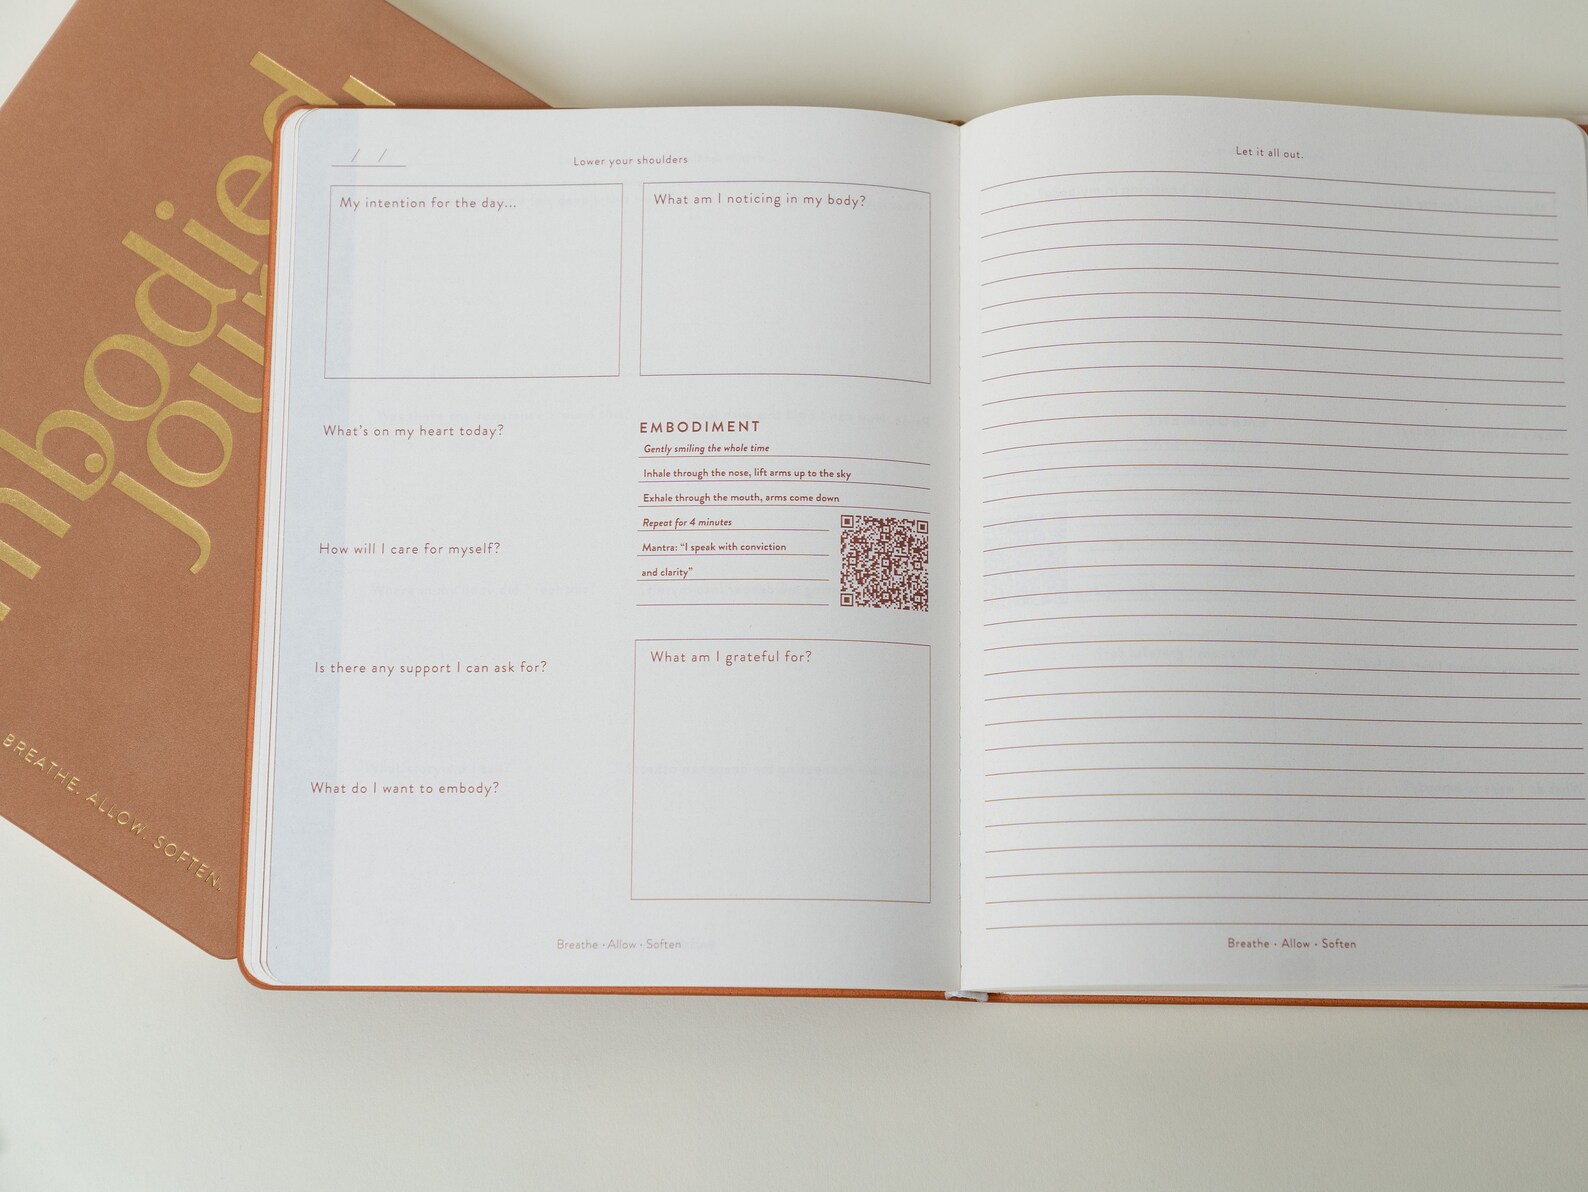 mbodied
jour
BREATHE. ALLOW. SOFTEN.
/ /
Lower your shoulders
My intention for the day...
What am I noticing in my body?
What's on my heart today?
How will I care for myself?
Is there any support I can ask for?
What do I want to embody?
EMBODIMENT
Gently smiling the whole time
Inhale through the nose, lift arms up to the sky
Exhale through the mouth, arms come down
Repeat for 4 minutes
Mantra: “I speak with conviction
and clarity”
What am I grateful for?
Breathe · Allow · Soften
Let it all out.
Breathe · Allow · Soften